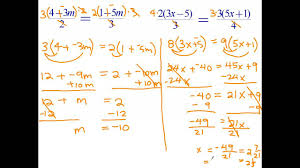 3(4 + -3m)·2 / 2 = 2(1 + 5m)·3 / 3
3(4 + -3m) = 2(1 + 5m)
12 + -9m = 2 + 10m
+ -10m + -10m
12 + m = 2
-12 -12
m = -10
4 2(3x - 5) / 3 = 3 3(5x + 1) / 4
8(3x + 5) = 9(5x + 1)
24x + -40 = 45x + 9
-24x -24x
-40 = 21x + 9
-9 -9
-49 / 21 = 21x / 21
x = -49 / 21 = 2 7/21